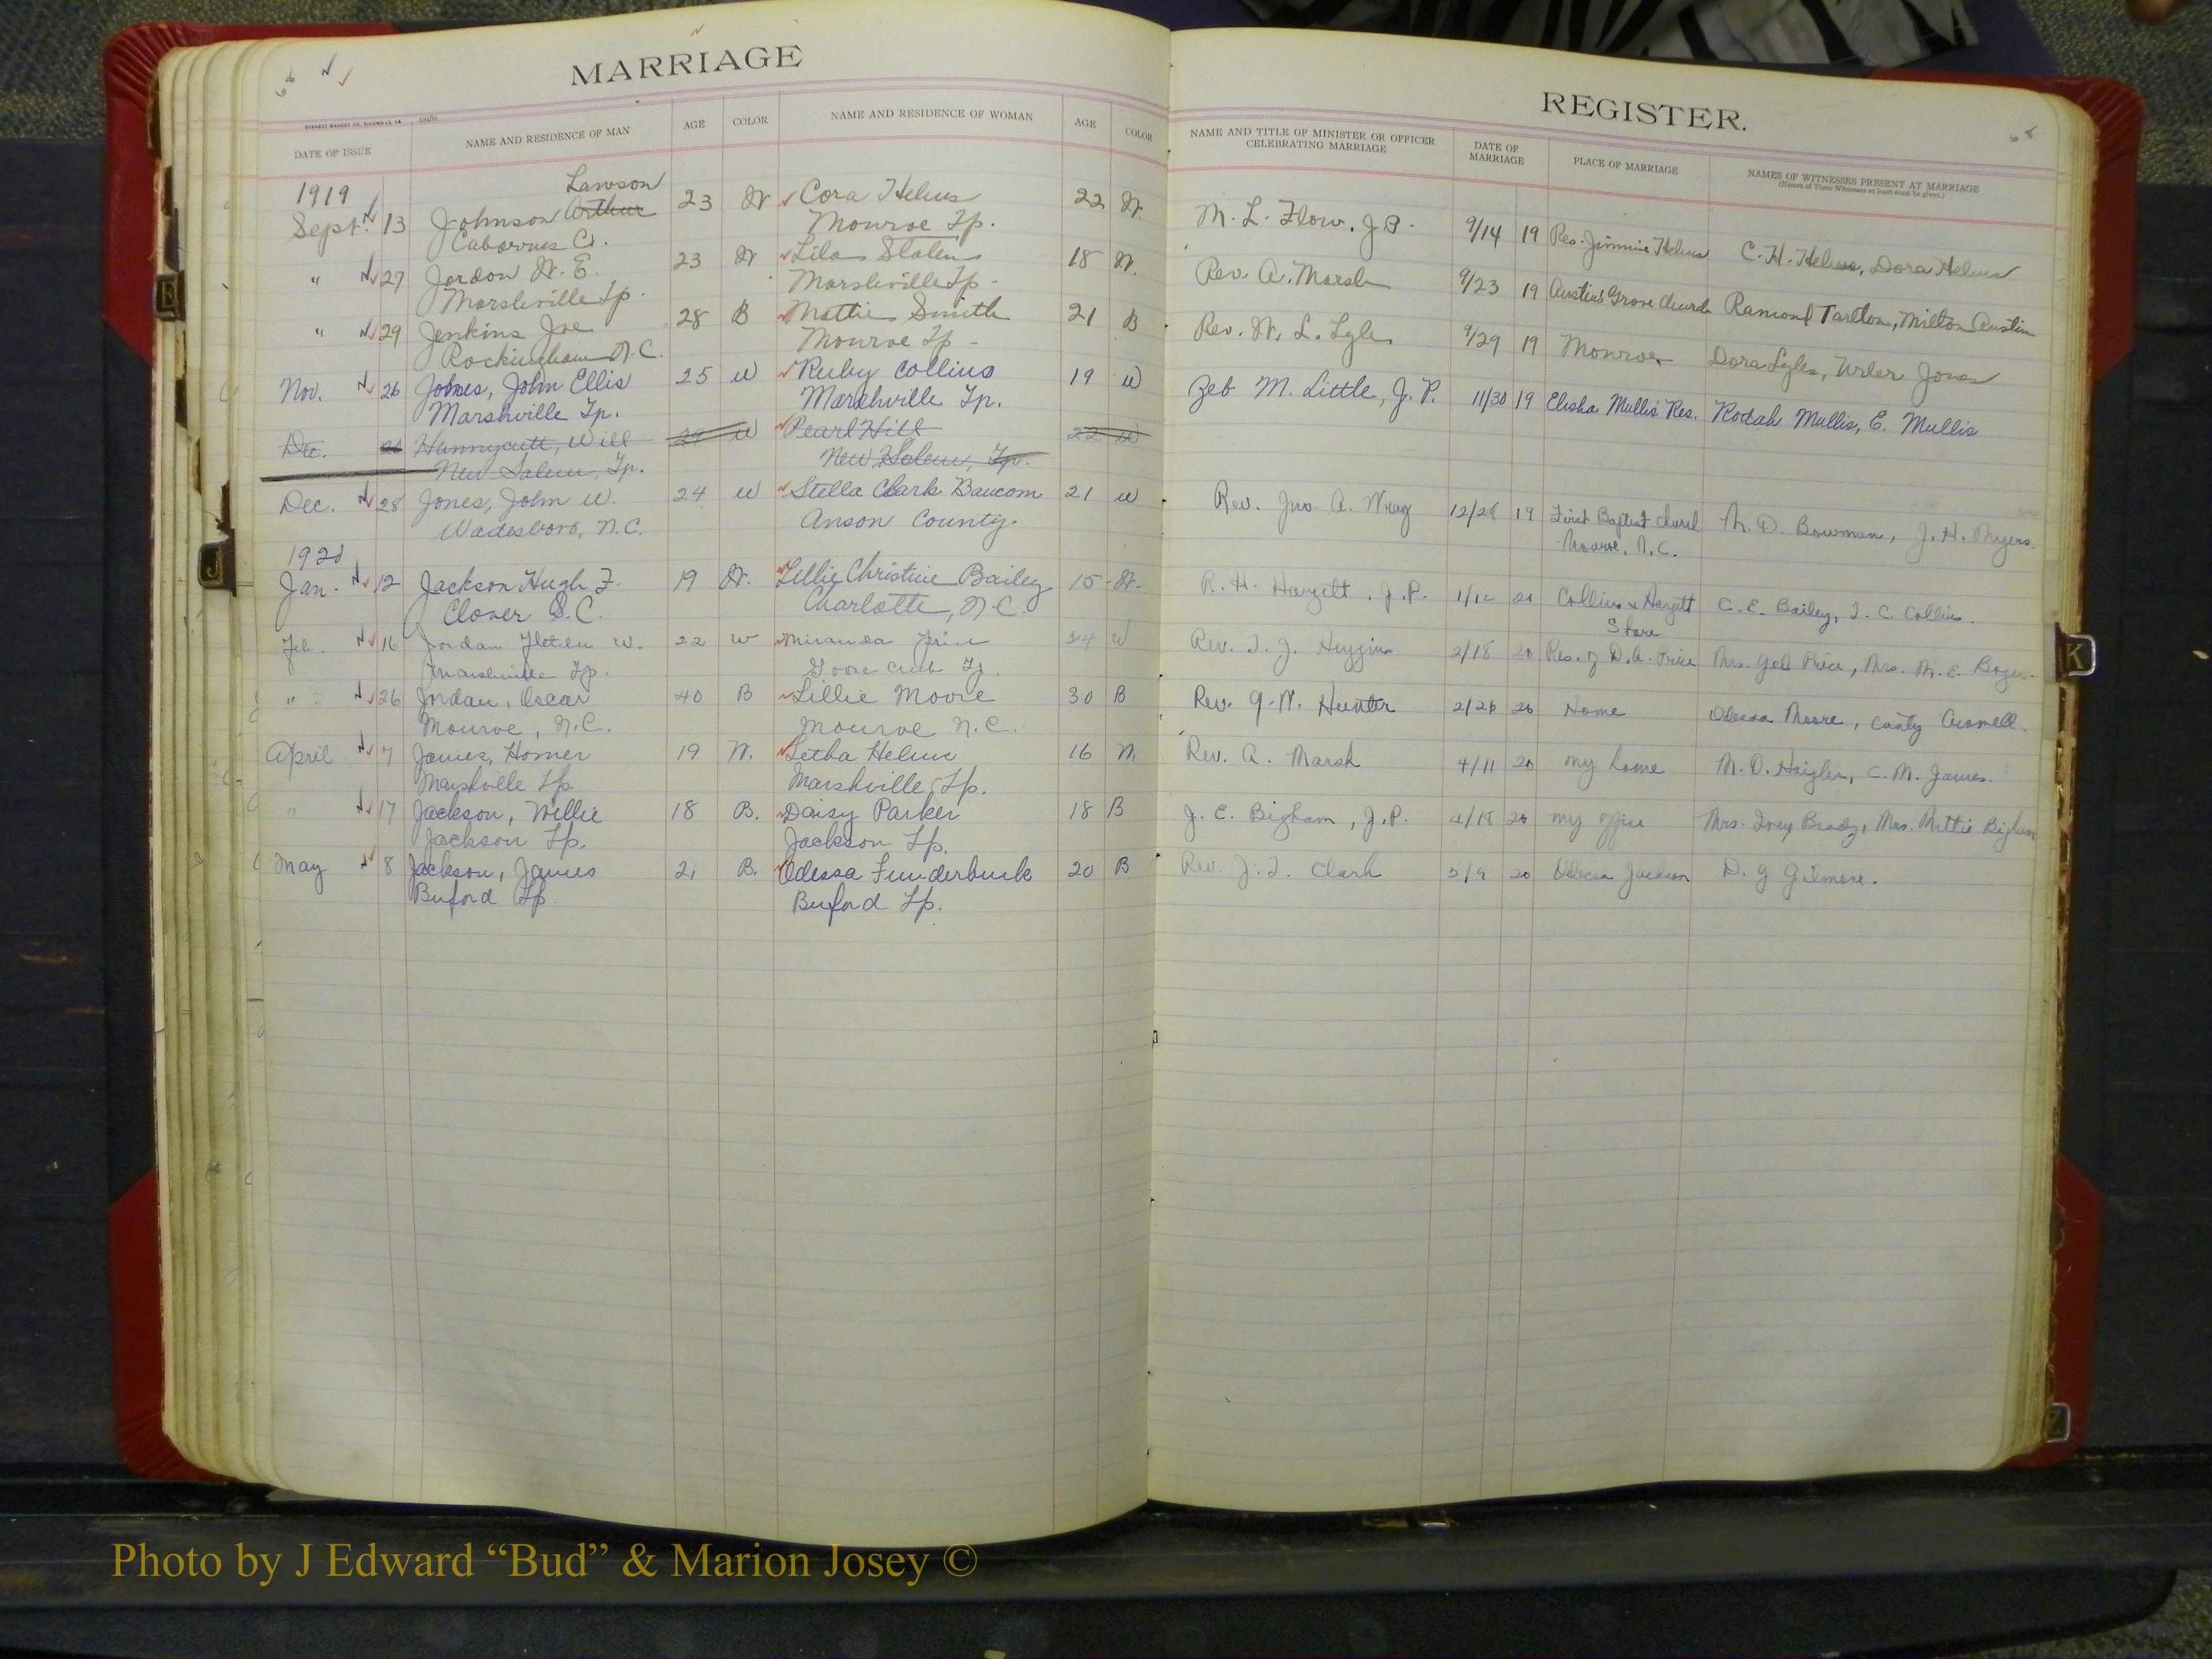 MARRIAGE
DATE OF ISSUE NAME AND RESIDENCE OF MAN AGE COLOR NAME AND RESIDENCE OF WOMAN AGE COLOR
1919 Lawson
Sept. 13 Johnson Arthur 23 W Cora Helms 22 W.
Cabarrus Co. Monroe Tp.
" 27 Jordon W. E. 23 W Lila Staten 18 W.
Marshville Tp. Marshville Tp.
" 29 Jenkins Joe 28 B Mattie Smith 21 B
Rockingham N.C. Monroe Tp
Nov. 26 John Ellis 25 W Ruby Collins 19 W
Marshville Tp. Marshville Tp.
Dec. Hunnycutt, Will W Pearl Hill 22 W
New Salem, Tp. New Salem, Tp.
Dec. 28 Jones, John W. 24 W Stella Clark Baucom 21 W
Wadesboro, N.C. Anson County.
1920
Jan. 12 Jackson Hugh F. 19 W. Lillie Christine Bailey 15 W.
Clover S.C. Charlotte, N.C.
Feb 16 Jordan W. 22 W Miranda W
Marshville Tp. Goose Creek Tp.
" 26 Jordan, Oscar 40 B Lillie Moore 30 B
Monroe, N.C. Monroe N.C.
April 7 James, Homer 19 W. Letha Helms 16 W.
Marshville Tp. Marshville Tp.
" 17 Jackson, Willie 18 B. Daisy Parker 18 B
Jackson Tp. Jackson Tp.
May 8 Jackson, James 21 B. Odessa Funderburk 20 B
Buford Tp. Buford Tp.
REGISTER.
NAME AND TITLE OF MINISTER OR OFFICER CELEBRATING MARRIAGE DATE OF MARRIAGE PLACE OF MARRIAGE NAMES OF WITNESSES PRESENT AT MARRIAGE
(Names of Three Witnesses at least must be given.)
M. L. Flow, J.P. 9/14 19 Res. Jimmie Helms C. H. Helms, Dora Helms
Rev. A. Marsh 9/23 19 Austins Grove Church Ramond Tarlton, Milton Austin
Rev. W. L. Lyles 9/29 19 Monroe Dora Lyles, Jones
Zeb M. Little, J. P. 11/30 19 Elisha Mullis Res. Rodah Mullis, E. Mullis
Rev. Jno A. Wray 12/28 19 First Baptist Church M. D. Bowman, J. H. Myers.
Monroe, N.C.
R. H. Hargett, J.P. 1/12 20 Collins & Hargett C. E. Bailey, T. C. Collins.
Store
Rev. T. J. Huggins 2/18 20 Res. of D. A. Price Mrs. Price, Mrs. M. E.
Rev. Hunter 2/26 20 Home Odessa Moore,
Rev. A. Marsh 4/11 20 my home M. O. Haigler, C. M. James.
J. E. Bigham, J.P. 4/18 20 my office Mrs. Ivey Brady, Mrs. Mattie Bigham
Rev. J. T. Clark 5/9 20 Odessa Jackson D. G Gilmore.
E
J
K
Photo by J Edward “Bud” & Marion Josey ©